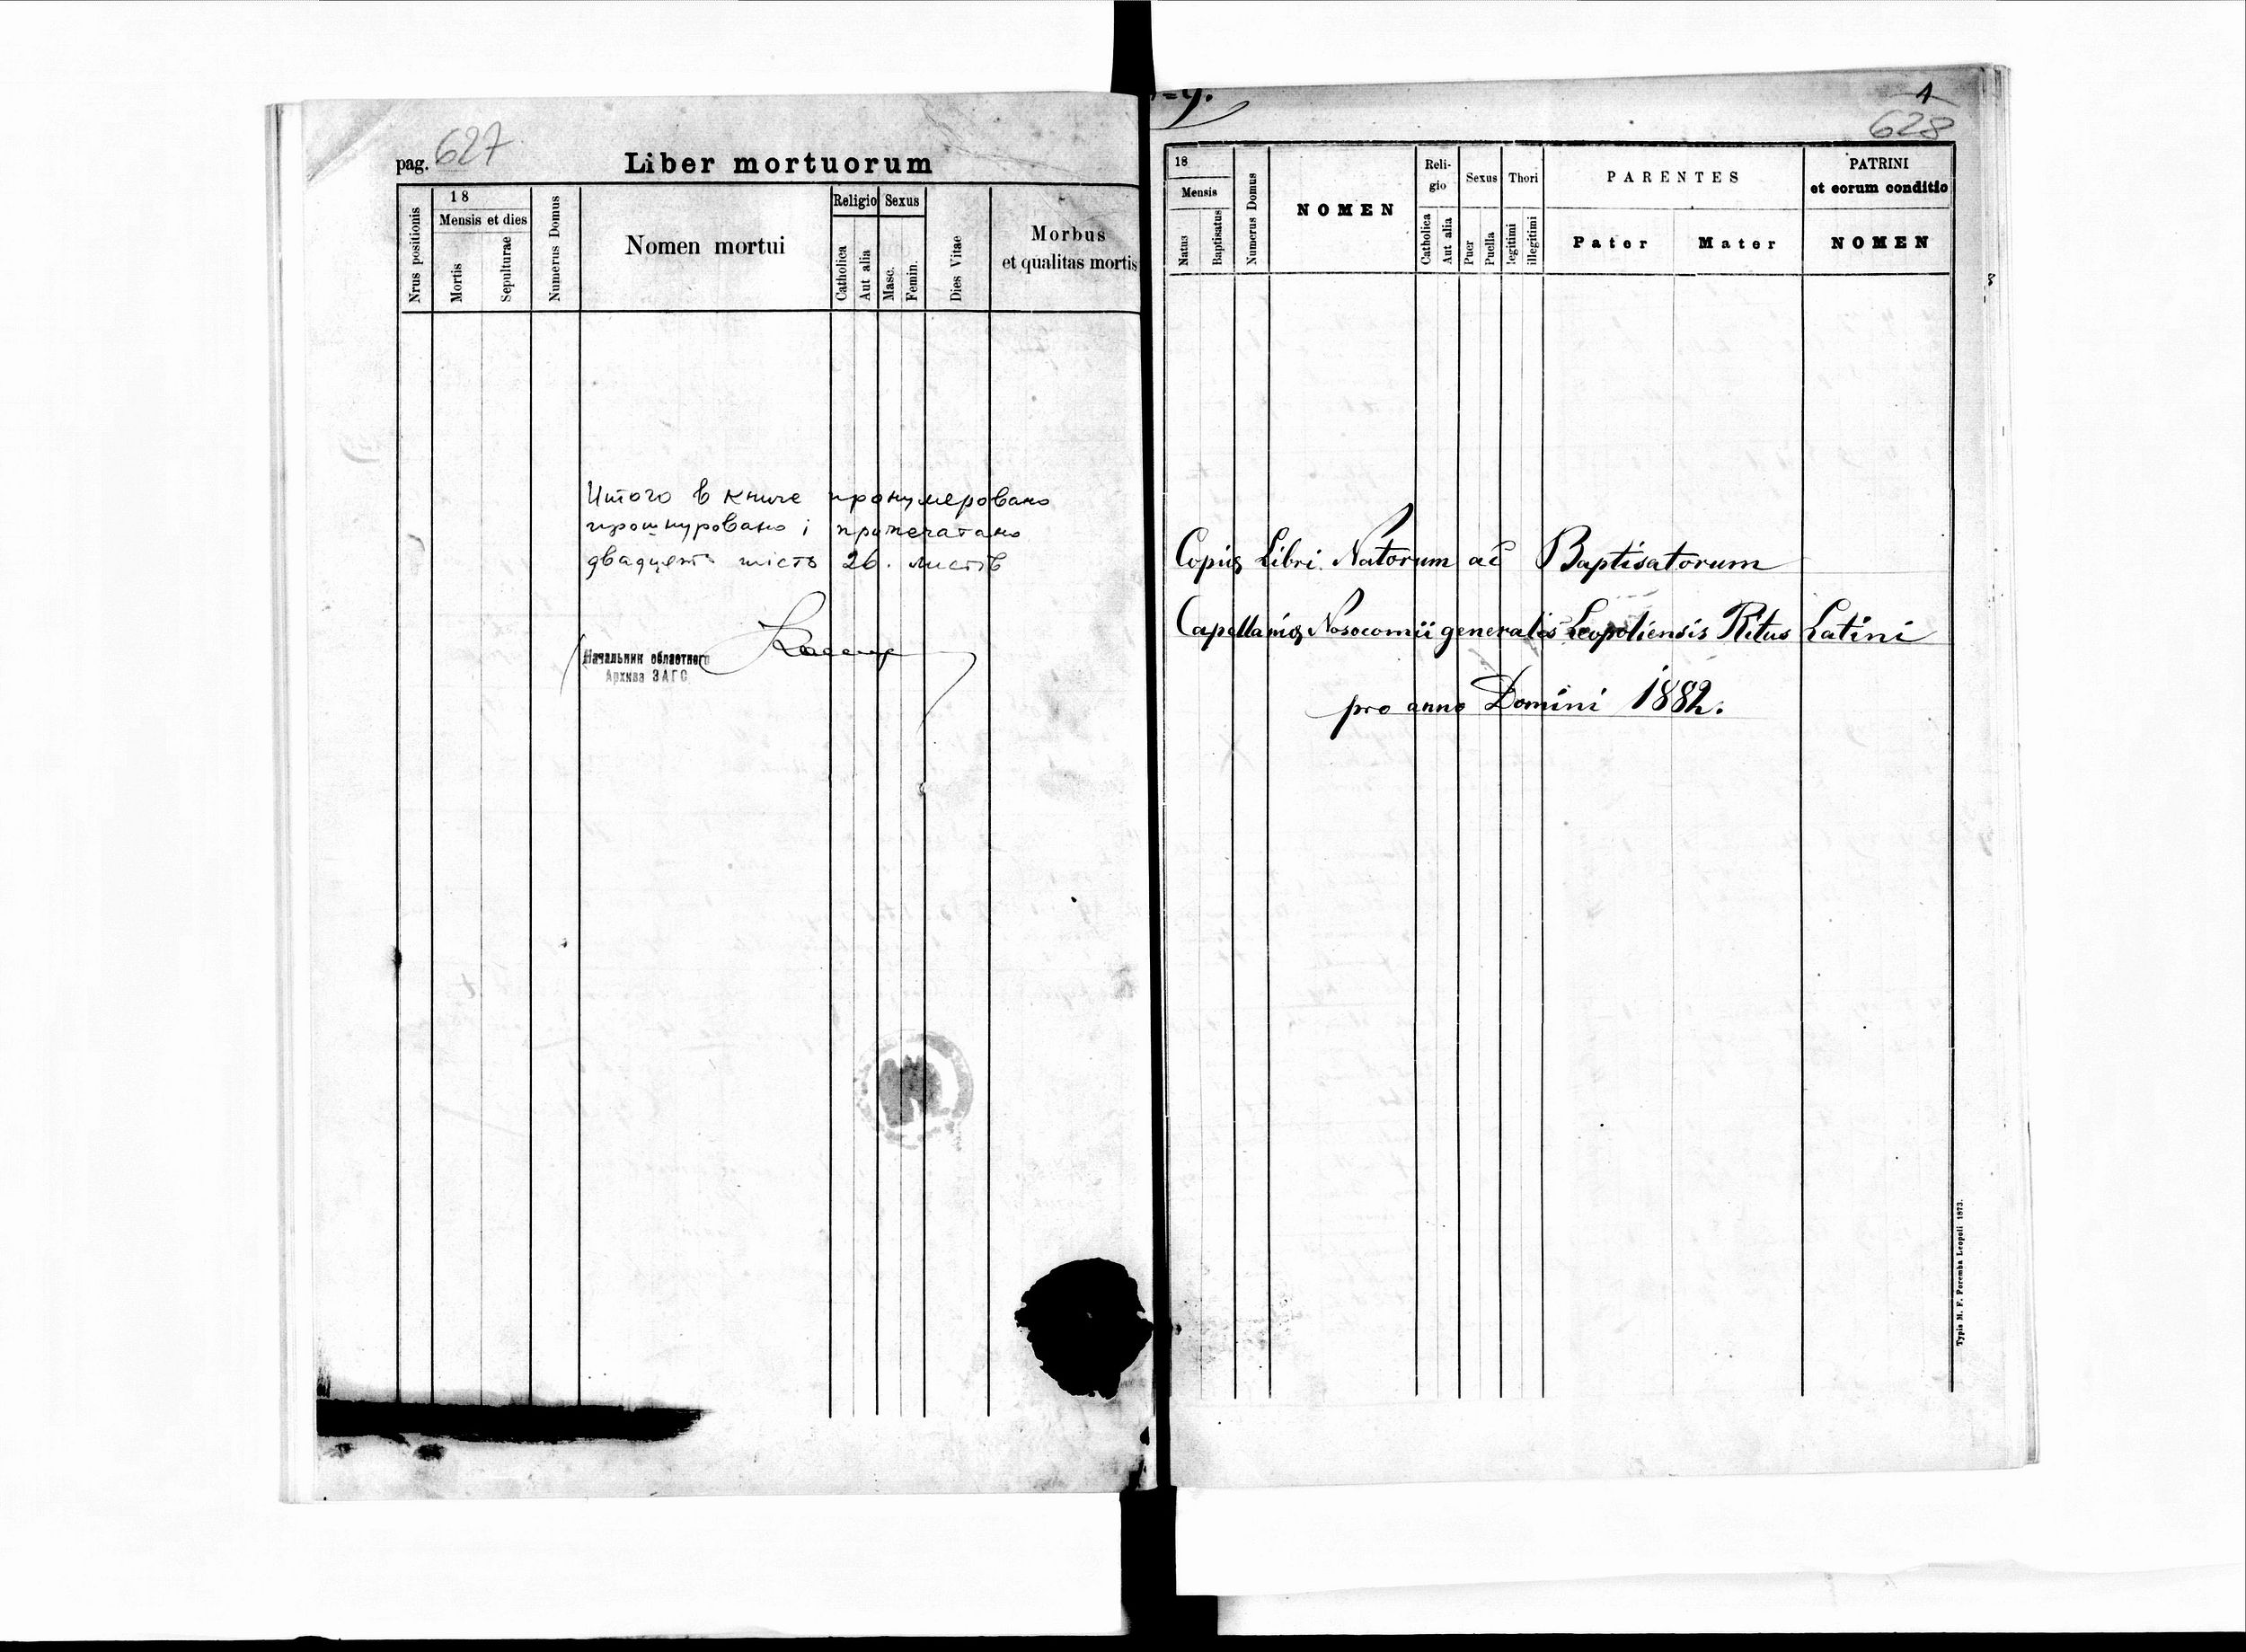 pag. 627
Liber mortuorum
Nrus positionis
18
Mensis et dies
Mortis
Sepulturae
Numerus Domus
Nomen mortui
Religio
Catholica
Aut alia
Sexus
Masc.
Femin.
Dies Vitae
Morbus
et qualitas mortis
Итого в книге пронумеровано
прошнуровано і припечатано
двадцять шість 26. листів
Начальник областного
Архива ЗАГС
=9.
1
628
18
Mensis
Natus
Baptisatus
Numerus Domus
NOMEN
Reli-
gio
Catholica
Aut alia
Sexus
Puer
Puella
Thori
legitimi
illegitimi
PARENTES
Pater
Mater
PATRINI
et eorum conditio
NOMEN
Copia Libri Natorum ac Baptisatorum
Capellaniae Nosocomii generalis Leopoliensis Ritus Latini
pro anno Domini 1882.
Typis M. F. Poremba Leopoli 1873.